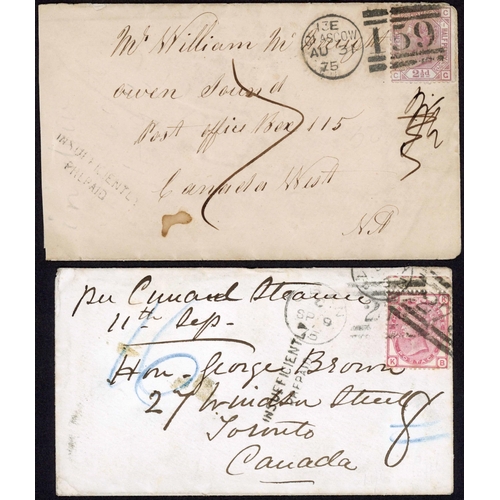 Mr William Mc
Owen Sound
Post office Box 115
Canada West
N.A
GLASGOW
AU 31
75
159
2½d
INSUFFICIENTLY
PREPAID
7
per Cunard Steamer
11th Sep.
Hon. George Brown
27 Windsor Street
Toronto
Canada
INSUFFICIENTLY
PREPAID